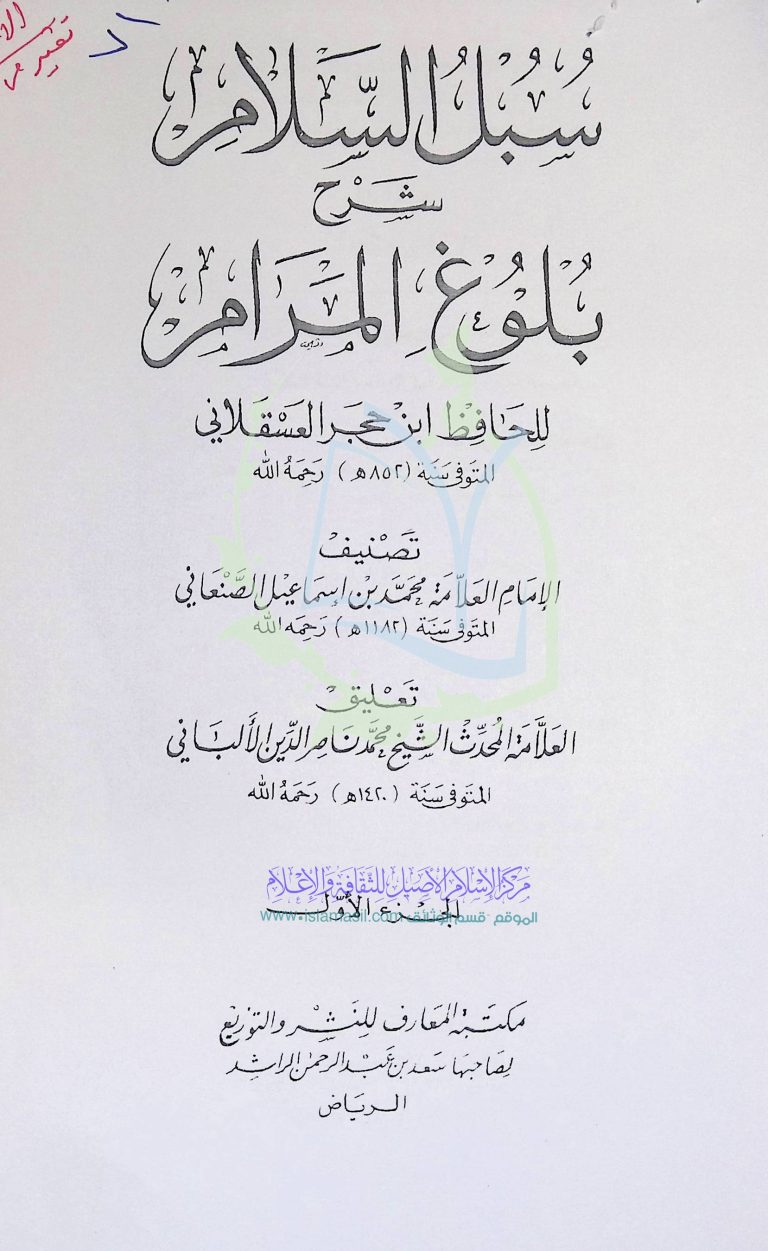 سُبُلُ السَّلَامِ
شَرْح
بُلُوغِ المَرَامِ
لِلْحَافِظِ ابْنِ حَجَرِ العَسْقَلَانِي
المتَوَفى سَنَة (٨٥٢ ه) رَحِمَهُ الله
تَصْنِيف
الإِمَامِ العَلَّامَة مُحَمَّد بْنِ إِسْمَاعِيلِ الصَّنْعَانِي
المتَوَفى سَنَة (١١٨٢ ه) رَحِمَه الله
تَعْلِيق
العَلَّامَة المُحَدِّثْ الشَّيْخ مُحَمَّد نَاصِرِ الدِّينِ الأَلْبَانِي
المتَوَفى سَنَة (١٤٢٠ ه) رَحِمَهُ الله
مركز الإسلام الأصيل للثقافة والإعلام
الجُزء الأوّل
الموقع - قسم الوثائق www.islamasil.com
مكتَبة المعَارف لِلنَشْر والتوزيع
لِصَاحِبها سَعد بن عَبْد الرحمن الراشِد
الريَاض